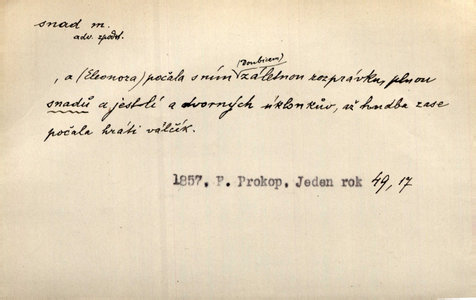 snad m.
adv. zpodst.
(Doubicem)
, a (Eleonora) počala s ním záletnou rozprávku, plnou
snadů a jestlí a dvorných úklonkův, až hudba zase
počala hráti válčík.
1857, P. Prokop, Jeden rok 49, 17